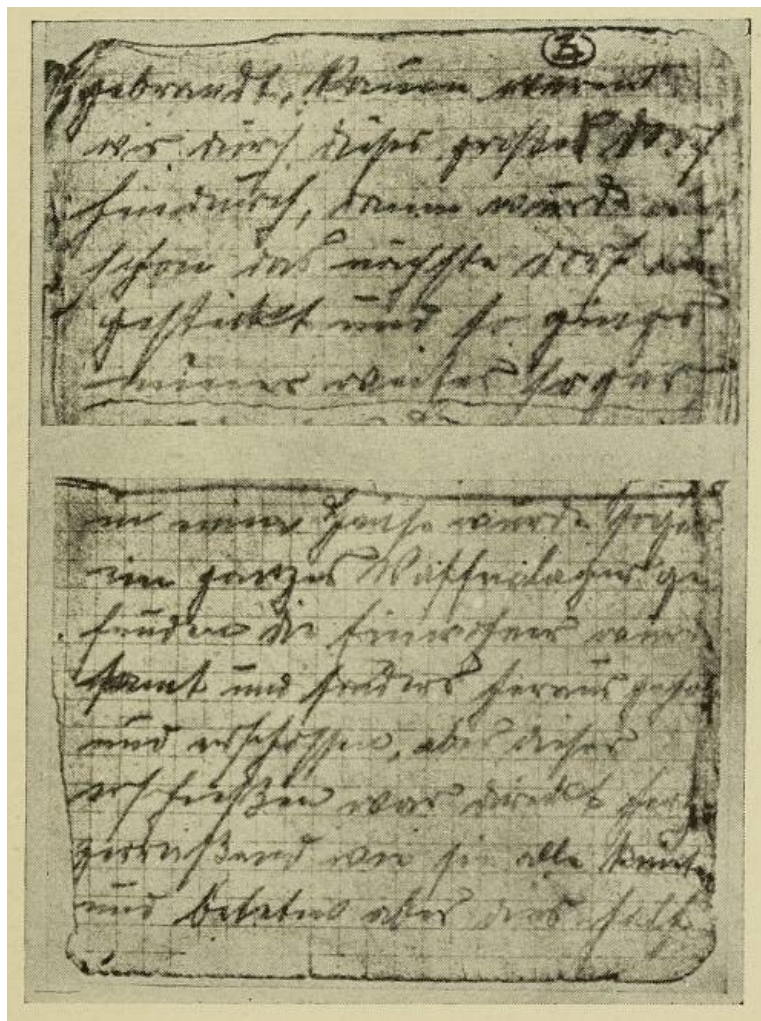 3
gebrandt, kaum waren
wir durch dieses große Dorf
hindurch, dann wurde
schon das nächste Dorf an
gesteckt und so gings
immer weiter sogar
in einem Hause wurde sogar
ein ganzes Waffenlager ge
funden die Einwohner wurd
samt und sonders heraus geho
und erschossen, aber dieses
erschießen war direkt herz
zerreißend wie sie alle knieten
und beteten aber dies half